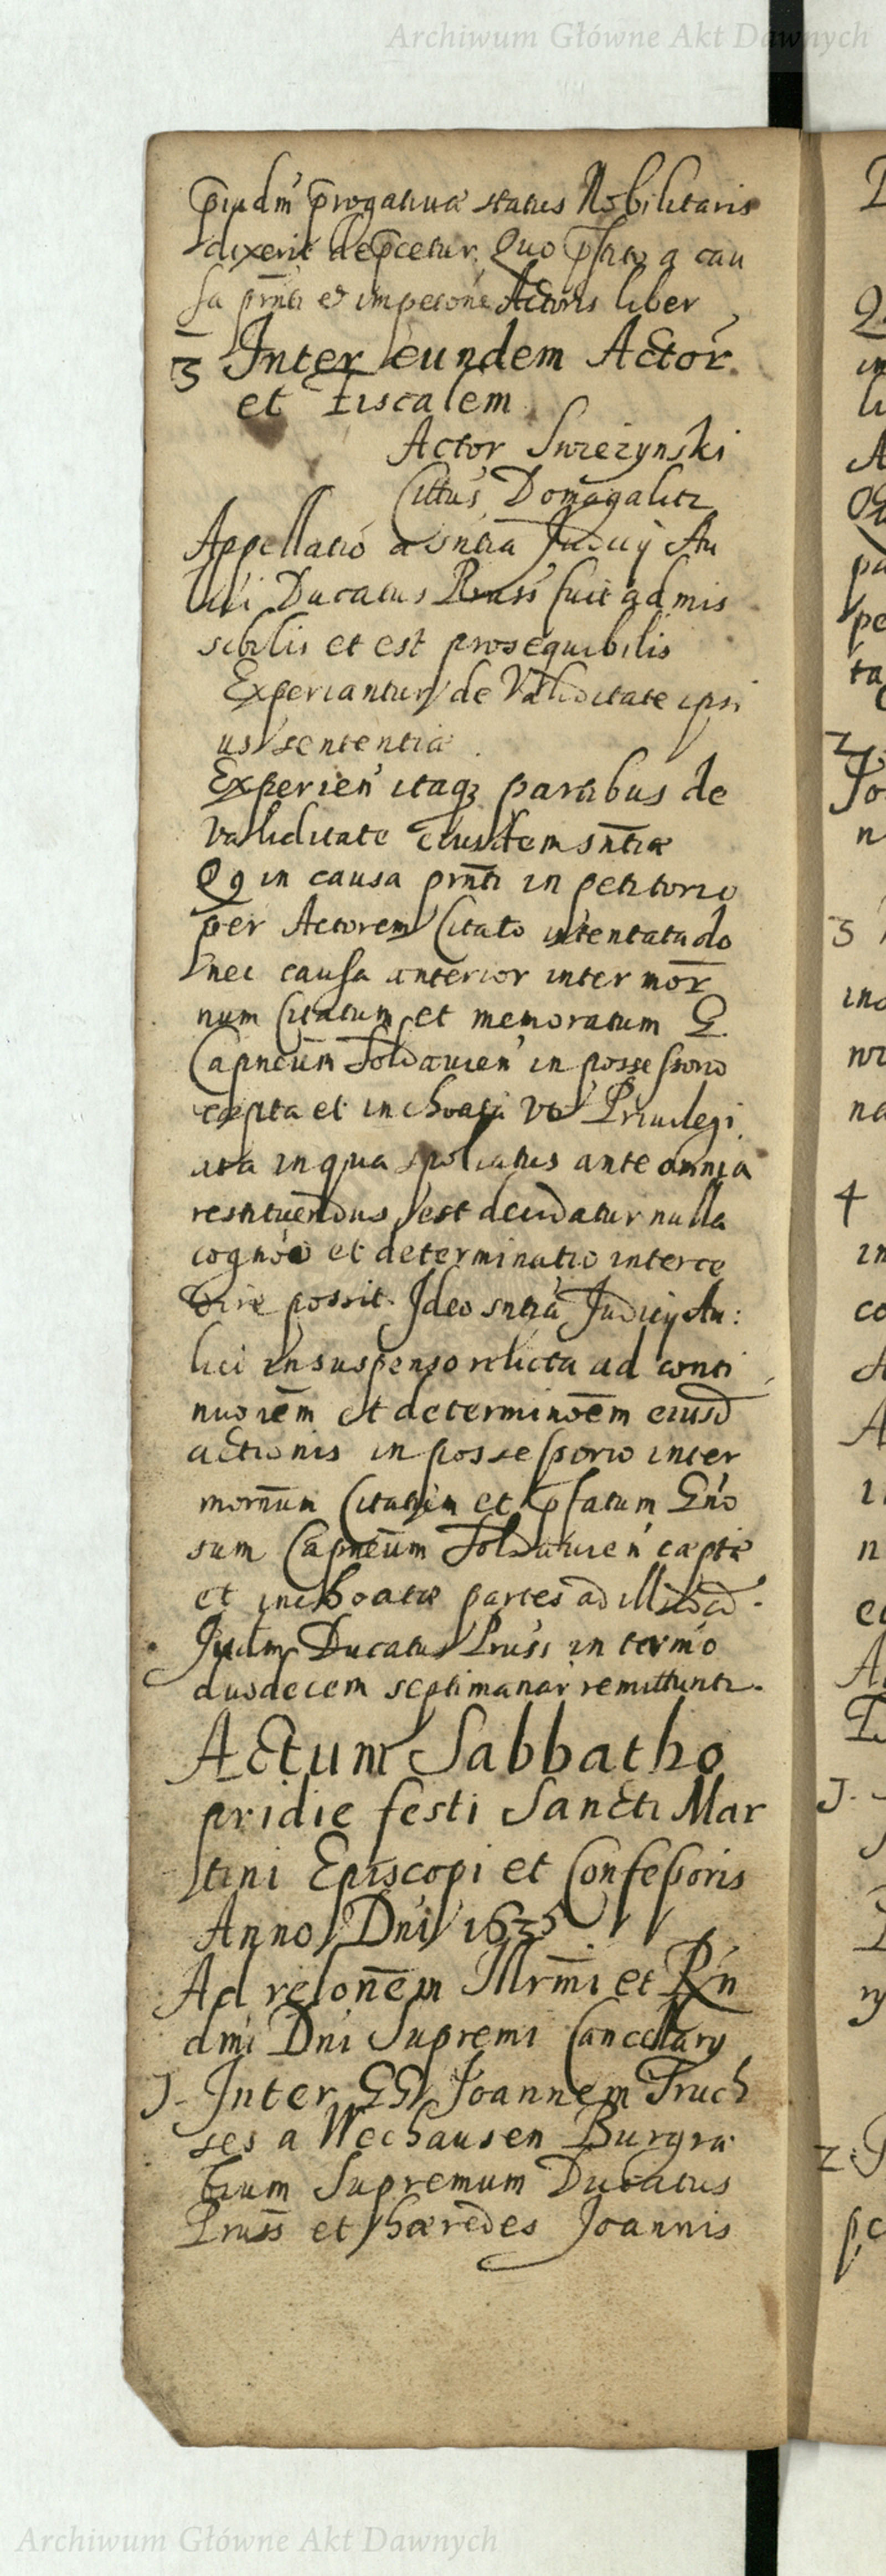 Archiwum Główne Akt Dawnych
p̄iudm̄ p̄rogatiuæ status Nobilitaris
dixerit dep̄cetur. Quo p̄stito a cau
sa prn̄ti et impetōne Actoris liber
3 Inter eundem Actor.
et Fiscalem
Actor Swiezynski
Cittus Domagalitz
Appellatio a sntia Judicij Au
lici Ducatus Pruss fuit admis
sibilis et est prosequibilis
Experiantur de Validitate ipsi
us sententiæ.
Experien̄ itaqꝫ partibus de
Validitate eiusdem sn̄tiæ
Qꝫ in causa prn̄ti in petitorio
per Actorem Citato intentata do
nec causa anterior inter mor̄
num Citatum et memoratum G.
Capneūm Soldauien̄ in possessorio
cæpta et inchoata vt Priuilegi
ata in qua spoliatus ante omnia
restituendus est decidatur nulla
cogn̄o et determinatio interce
dere possit. Ideo sntia Judicij Au:
lici in suspenso relicta ad conti
nuoīem et determinōem eiusd̄
actionis in possessorio inter
morn̄um Citatum et p̄fatum Gn̄o
sum Capneūm Soldauien̄ cæptæ
et inchoatæ partes ad illud
Judm̄ Ducatus Pruss in termo
duodecem septimanar̄ remittuntr.
Actum Sabbatho
pridie festi Sancti Mar
tini Episcopi et Confessoris
Anno Dni 1635
Ad relonēm Illrm̄i et Rn̄
dmi Dni Supremi Cancellarij
1. Inter GG Joannem Truch
ses a Wechausen Burgra
bium Supremum Ducatus
Pruss et hæredes Joannis
Archiwum Główne Akt Dawnych